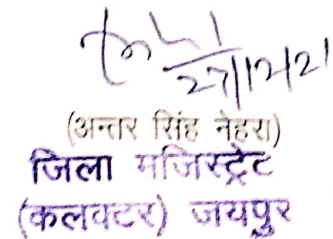 27/12/21
(अन्तर सिंह नेहरा)
जिला मजिस्ट्रेट
(कलक्टर) जयपुर